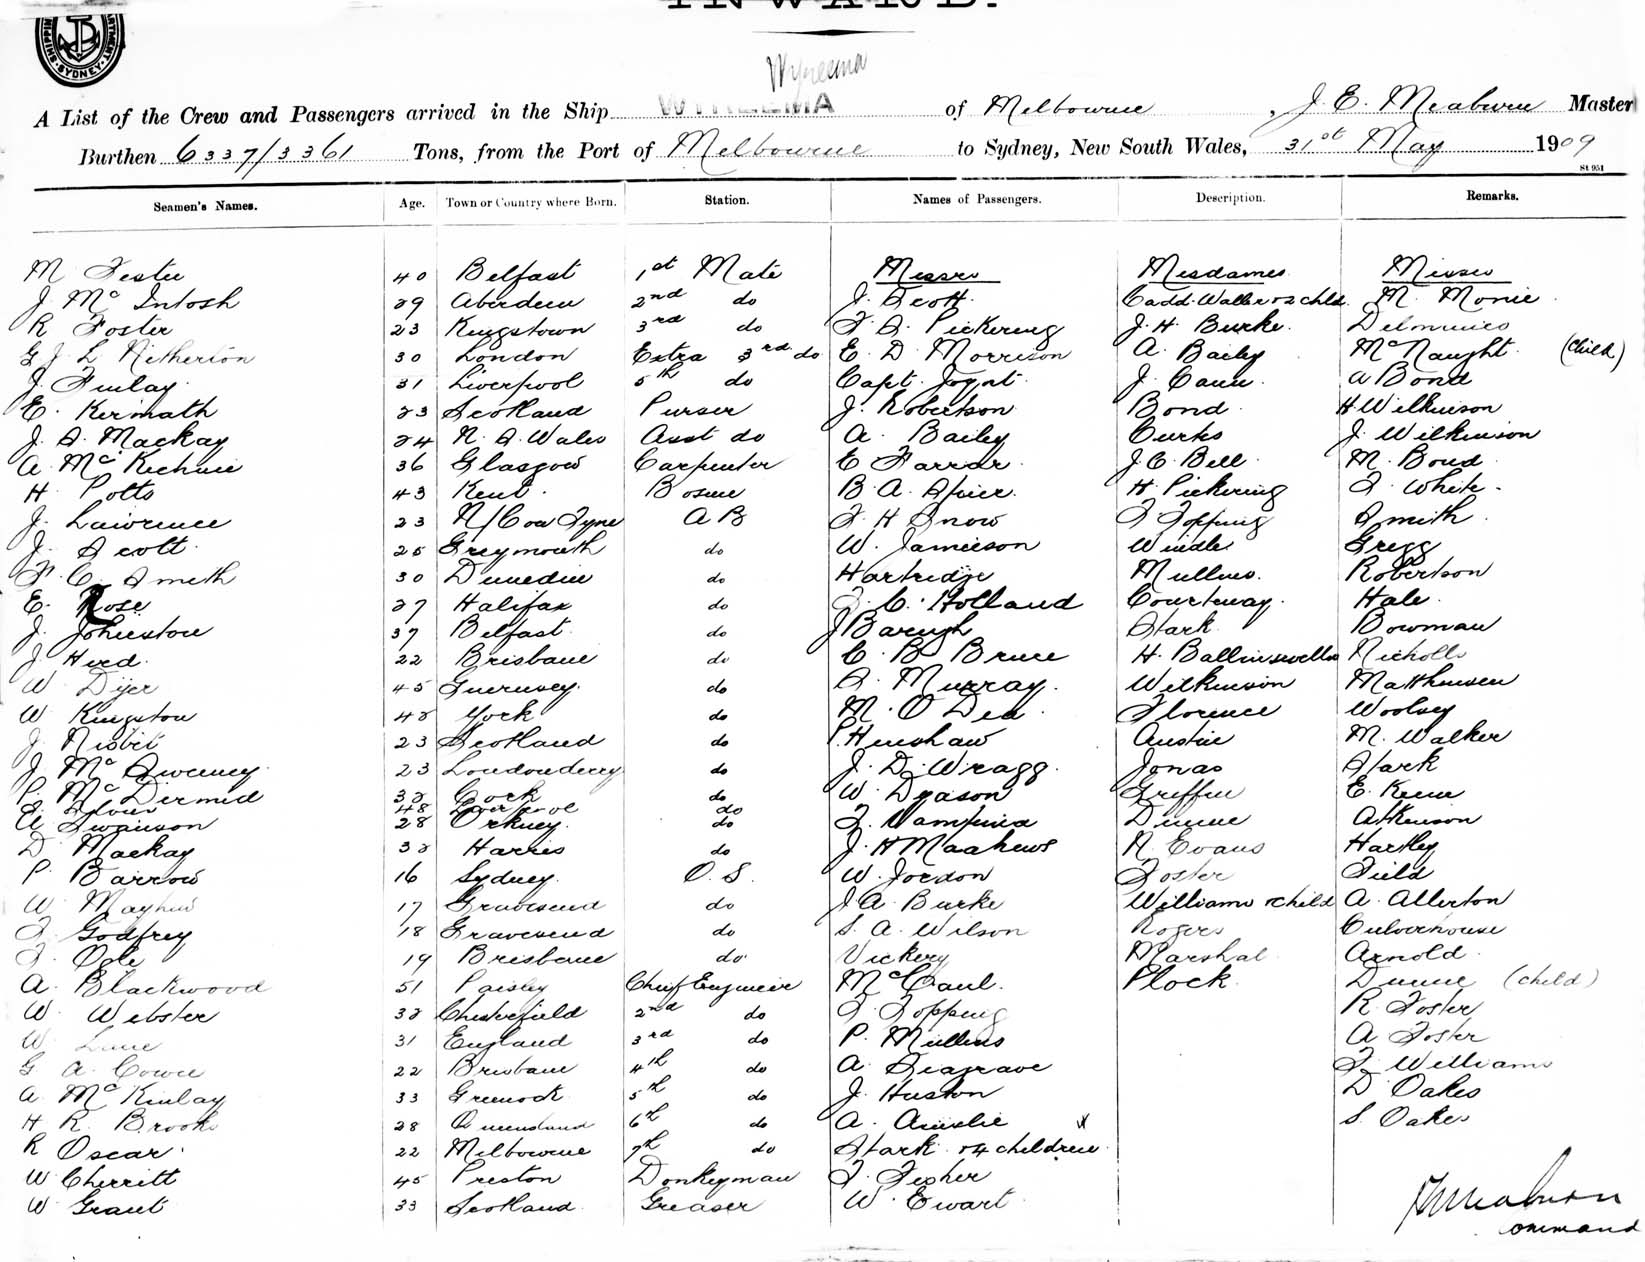 INWARD.
SHIPPING DEPARTMENT SYDNEY
Wyreema
A List of the Crew and Passengers arrived in the Ship WYREEMA of Melbourne, J. E. Meaburn Master
Burthen 6337/3361 Tons, from the Port of Melbourne to Sydney, New South Wales, 31st May 1909
St 951
Seamen's Names. Age. Town or Country where Born. Station. Names of Passengers. Description. Remarks.
M 40 Belfast 1st Mate Messrs Mesdames Misses
J. Mc Intosh 29 Aberdeen 2nd do J. Scott Cadd. Waller & 2 chld M. Monie
R Foster 23 Kingstown 3rd do F. S. Pickering J. H. Burke.
G J L Netherton 30 London Extra 3rd do E. D. Morrison A. Bailey McNaught (Child)
J. Finlay 31 Liverpool 5th do Capt. Joynt J. Cann. A Bond
E. Kermath 23 Scotland Purser J. Robertson Bond H. Wilkinson
J. S. Mackay 24 N. S. Wales Asst do A. Bailey Curks J. Wilkinson
A. Mc Kechnie 36 Glasgow Carpenter E Farrar J. C. Bell M. Bond
H. Potts 43 Kent Bosun B. A. Spier. H. Pickering F. White
J. Lawrence 23 N/Cow Tyne A B F. H Snow F Topping Smith
J. Scott 25 Greymouth do W. Jamieson Windle Gregg
F. C. Smith 30 Dunedin do Hartridge Mullins. Robertson
E. Rose 27 Halifax do F. C. Holland Courtenay Hale
J. Johnston 37 Belfast do J Barugh Stark Bowman
J Hird 22 Brisbane do C. B Bruce H. Ballinswella Nicholls
W Dyer 45 Guernsey do S. Murray. Wilkinson Matthewsen
W Kingston 42 York do M. O Dea Florence Woolsey
J. Nisbit 23 Scotland do P. Henshaw Austin M. Walker
J. Mc Sweeney 23 Londonderry do J. D. Wragg Jonas Stark
P. Mc Dermid 32 Cork do W. Dyason Griffin E. Keen
48 do
Swanson 28 Orkney. do Dunne Atkinson
D Mackay 32 Harris do J. H Maahews N. Evans Hartley
P. Barrow 16 Sydney. O. S. W. Jordon Foster Field
W. Mayhew 17 Gravesend do J. A. Burke Williams & child A. Allerton
F. Godfrey 18 Gravesend do S. A. Wilson Rogers Culverhouse
F. Ogle 19 Brisbane do Vickery Marshal Arnold
A. Blackwood 51 Paisley Chief Engineer McCaul. Plock Dunne (child)
W. Webster 32 Chesterfield 2nd do F. Topping R. Foster
W. Lane 31 England 3rd do P. Mullins A Foster
G. A. Cowie 22 Brisbane 4th do A. Seagrave F. Williams
A. McKinlay 33 Greenock 5th do J. Huston D Oakes
H R. Brooks 28 Queensland 6th do A. Ainslie x S. Oakes
R Oscar 22 Melbourne 7th do Stark & 4 children
W. Cherritt 45 Preston Donkeyman F. Fisher
W. Grant 33 Scotland Greaser W. Ewart
J E Meaburn
Command